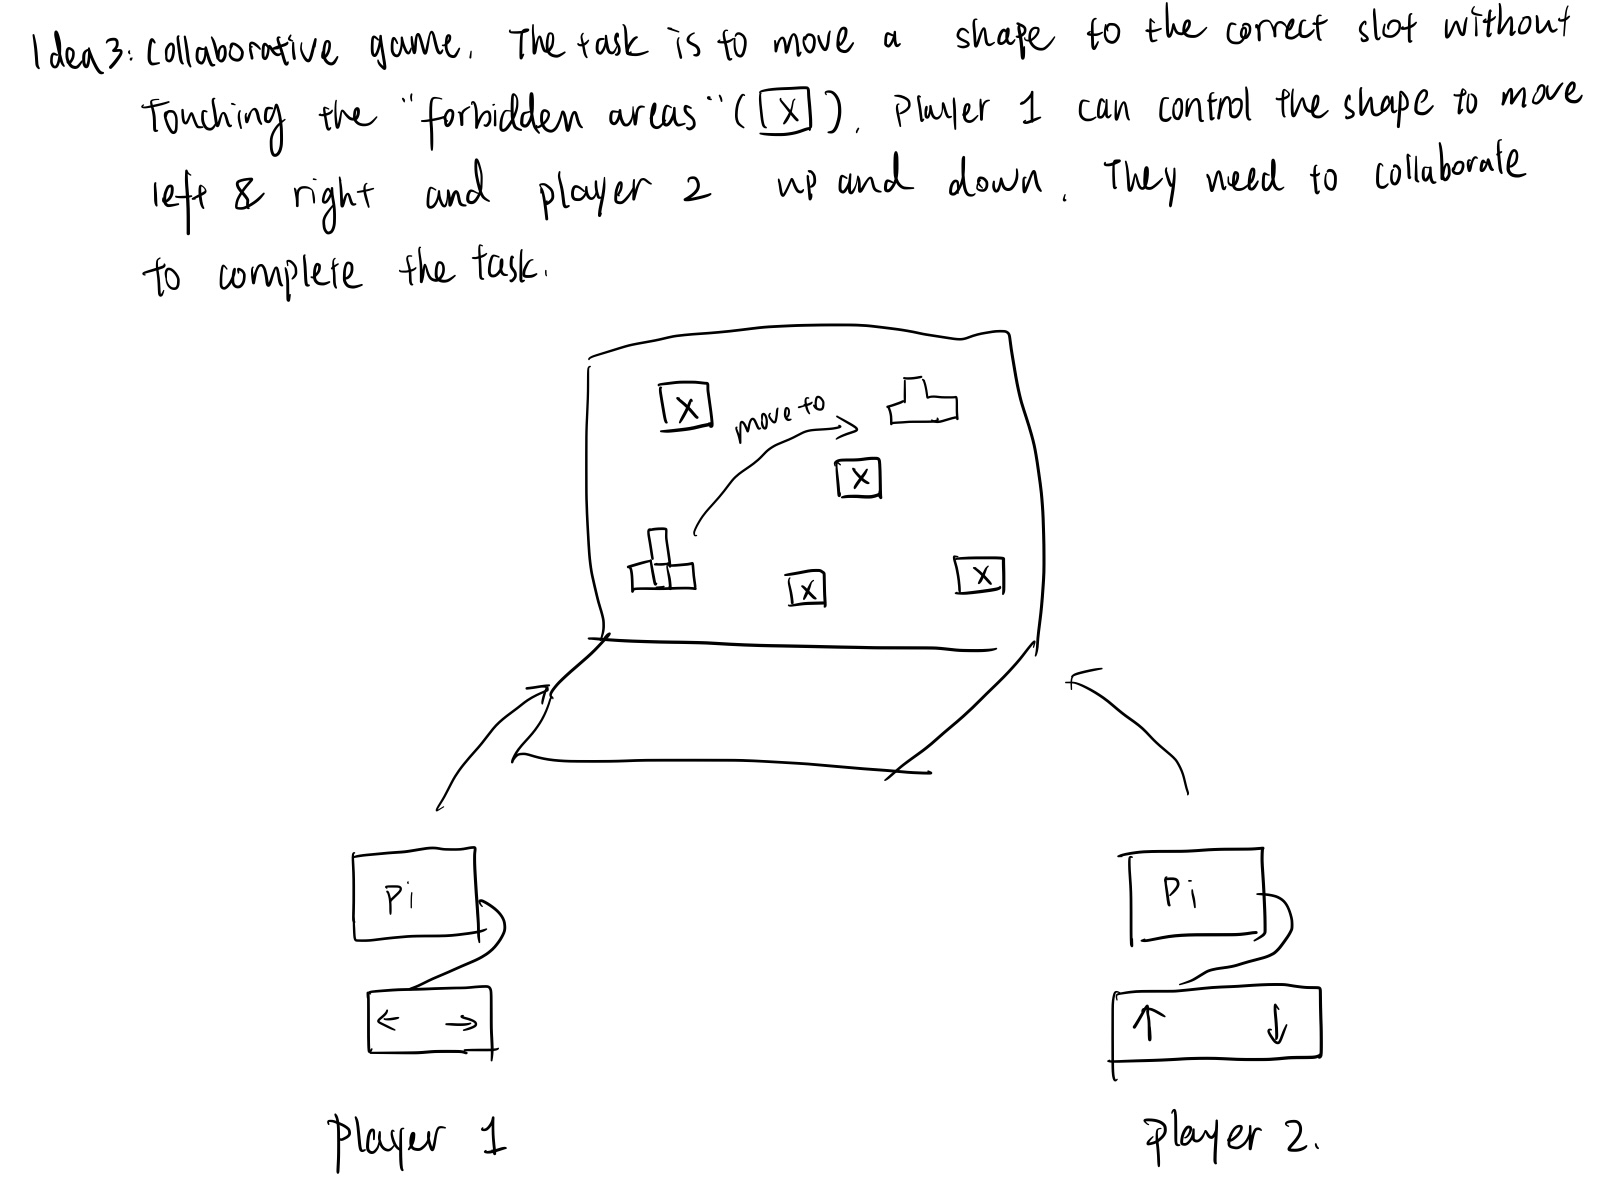 Idea 3: Collaborative game. The task is to move a shape to the correct slot without
Touching the "forbidden areas" (X). Player 1 can control the shape to move
left & right and player 2 up and down. They need to collaborate
to complete the task.
X
move to
X
X
X
Pi
Pi
← →
↑ ↓
player 1
player 2.